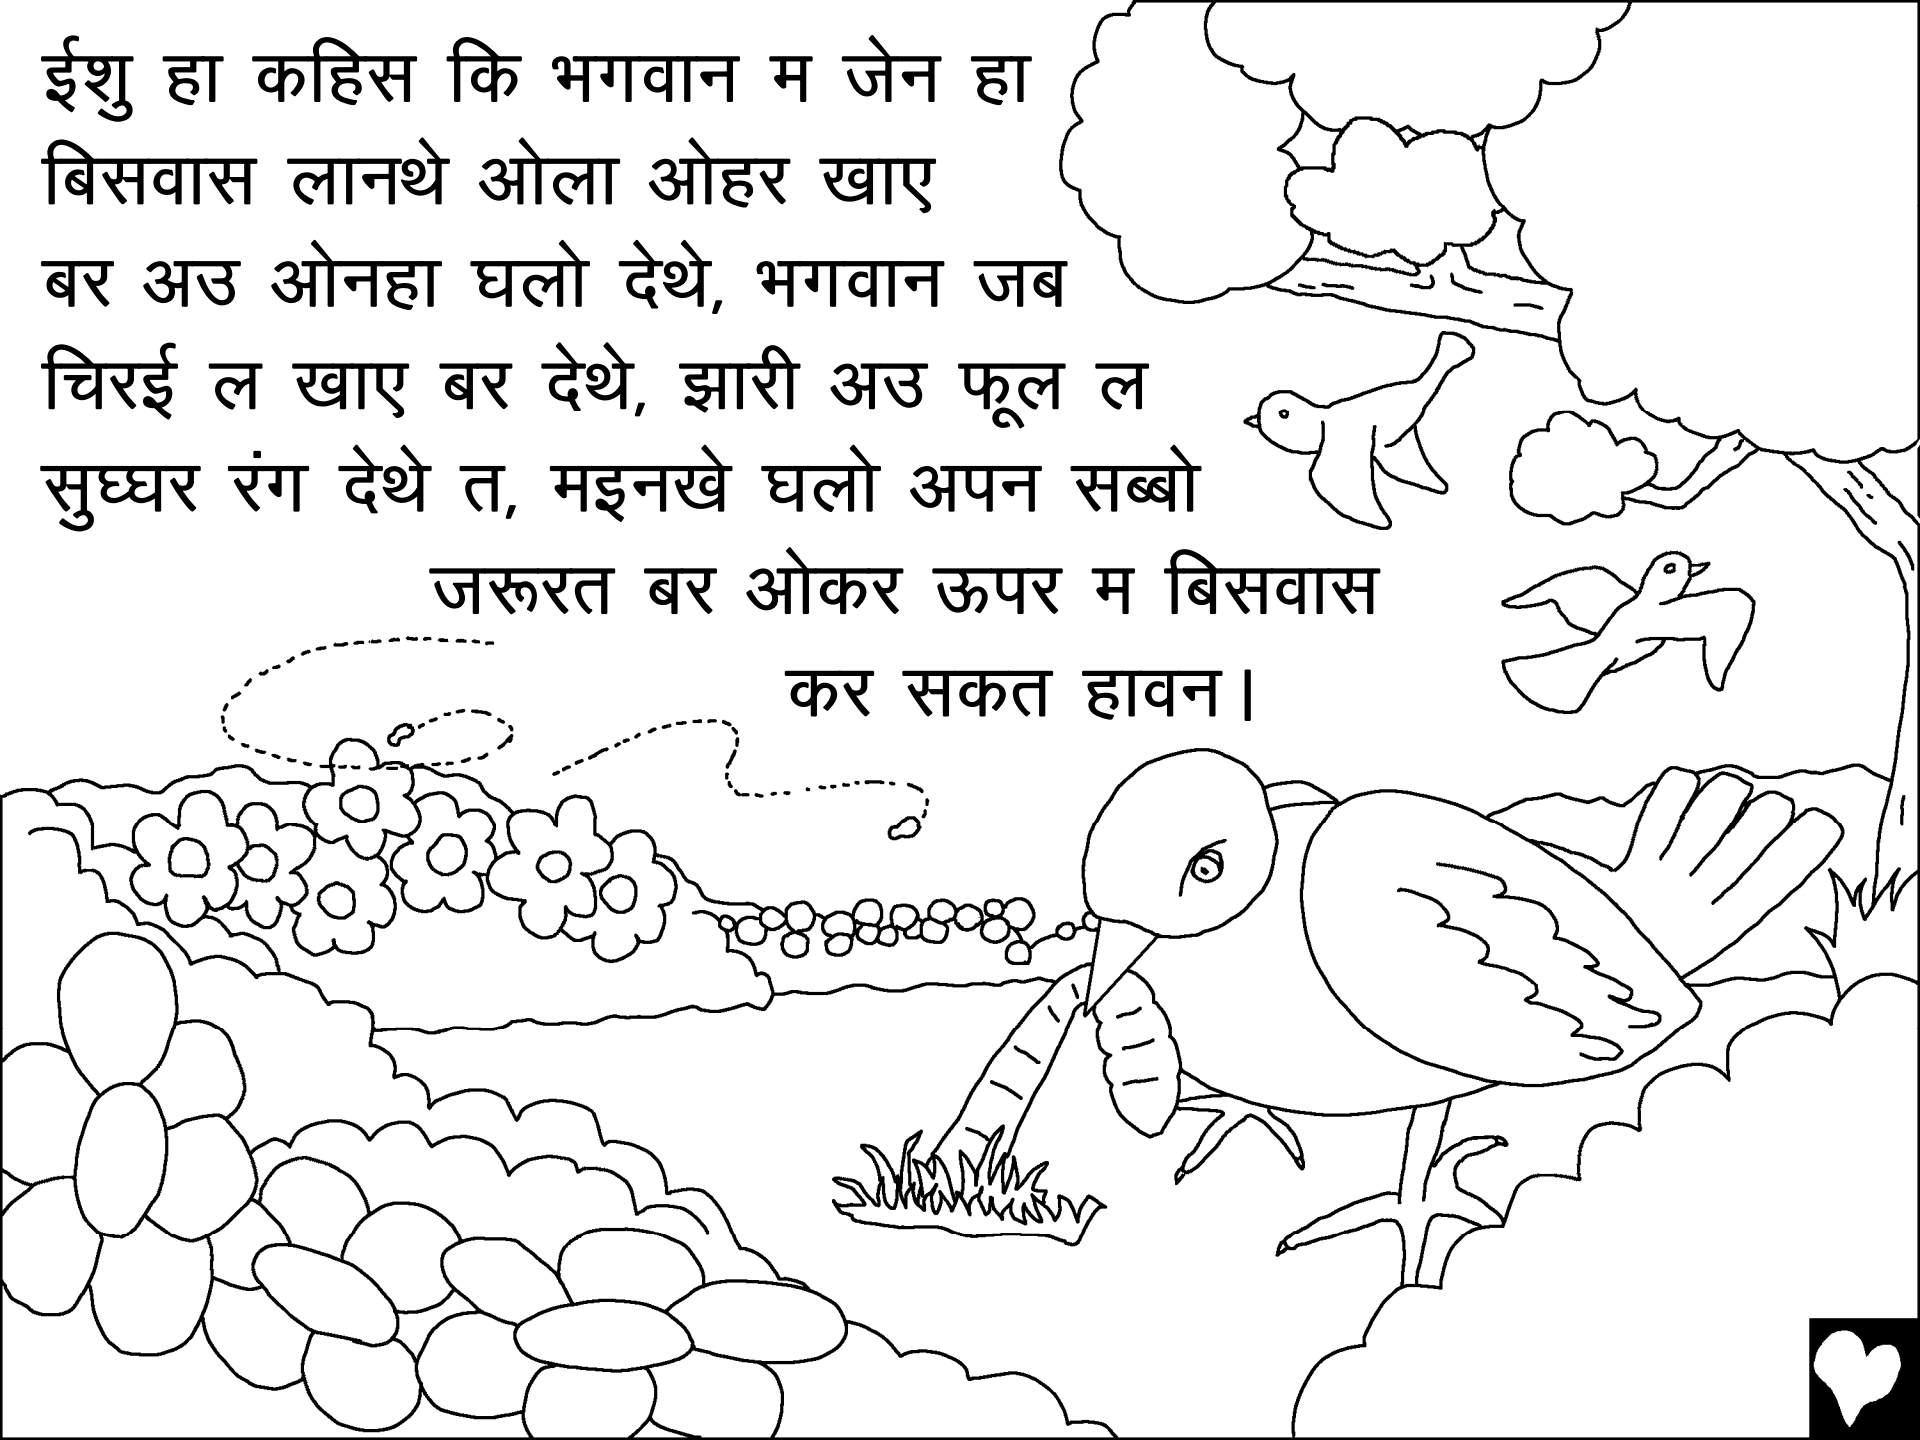 ईशु हा कहिस कि भगवान म जेन हा
बिसवास लानथे ओला ओहर खाए
बर अउ ओनहा घलो देथे, भगवान जब
चिरई ल खाए बर देथे, झारी अउ फूल ल
सुघ्घर रंग देथे त, मइनखे घलो अपन सब्बो
जरूरत बर ओकर ऊपर म बिसवास
कर सकत हावन।